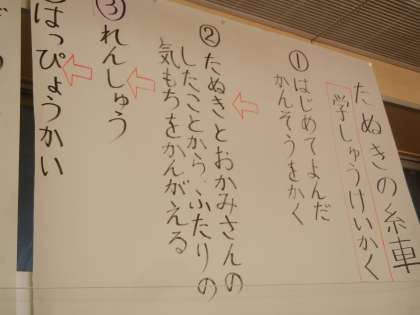 たぬきの糸車
学しゅうけいかく
①はじめてよんだ
かんそうをかく
②たぬきとおかみさんの
したことから、ふたりの
気もちをかんがえる
③れんしゅう
はっぴょうかい